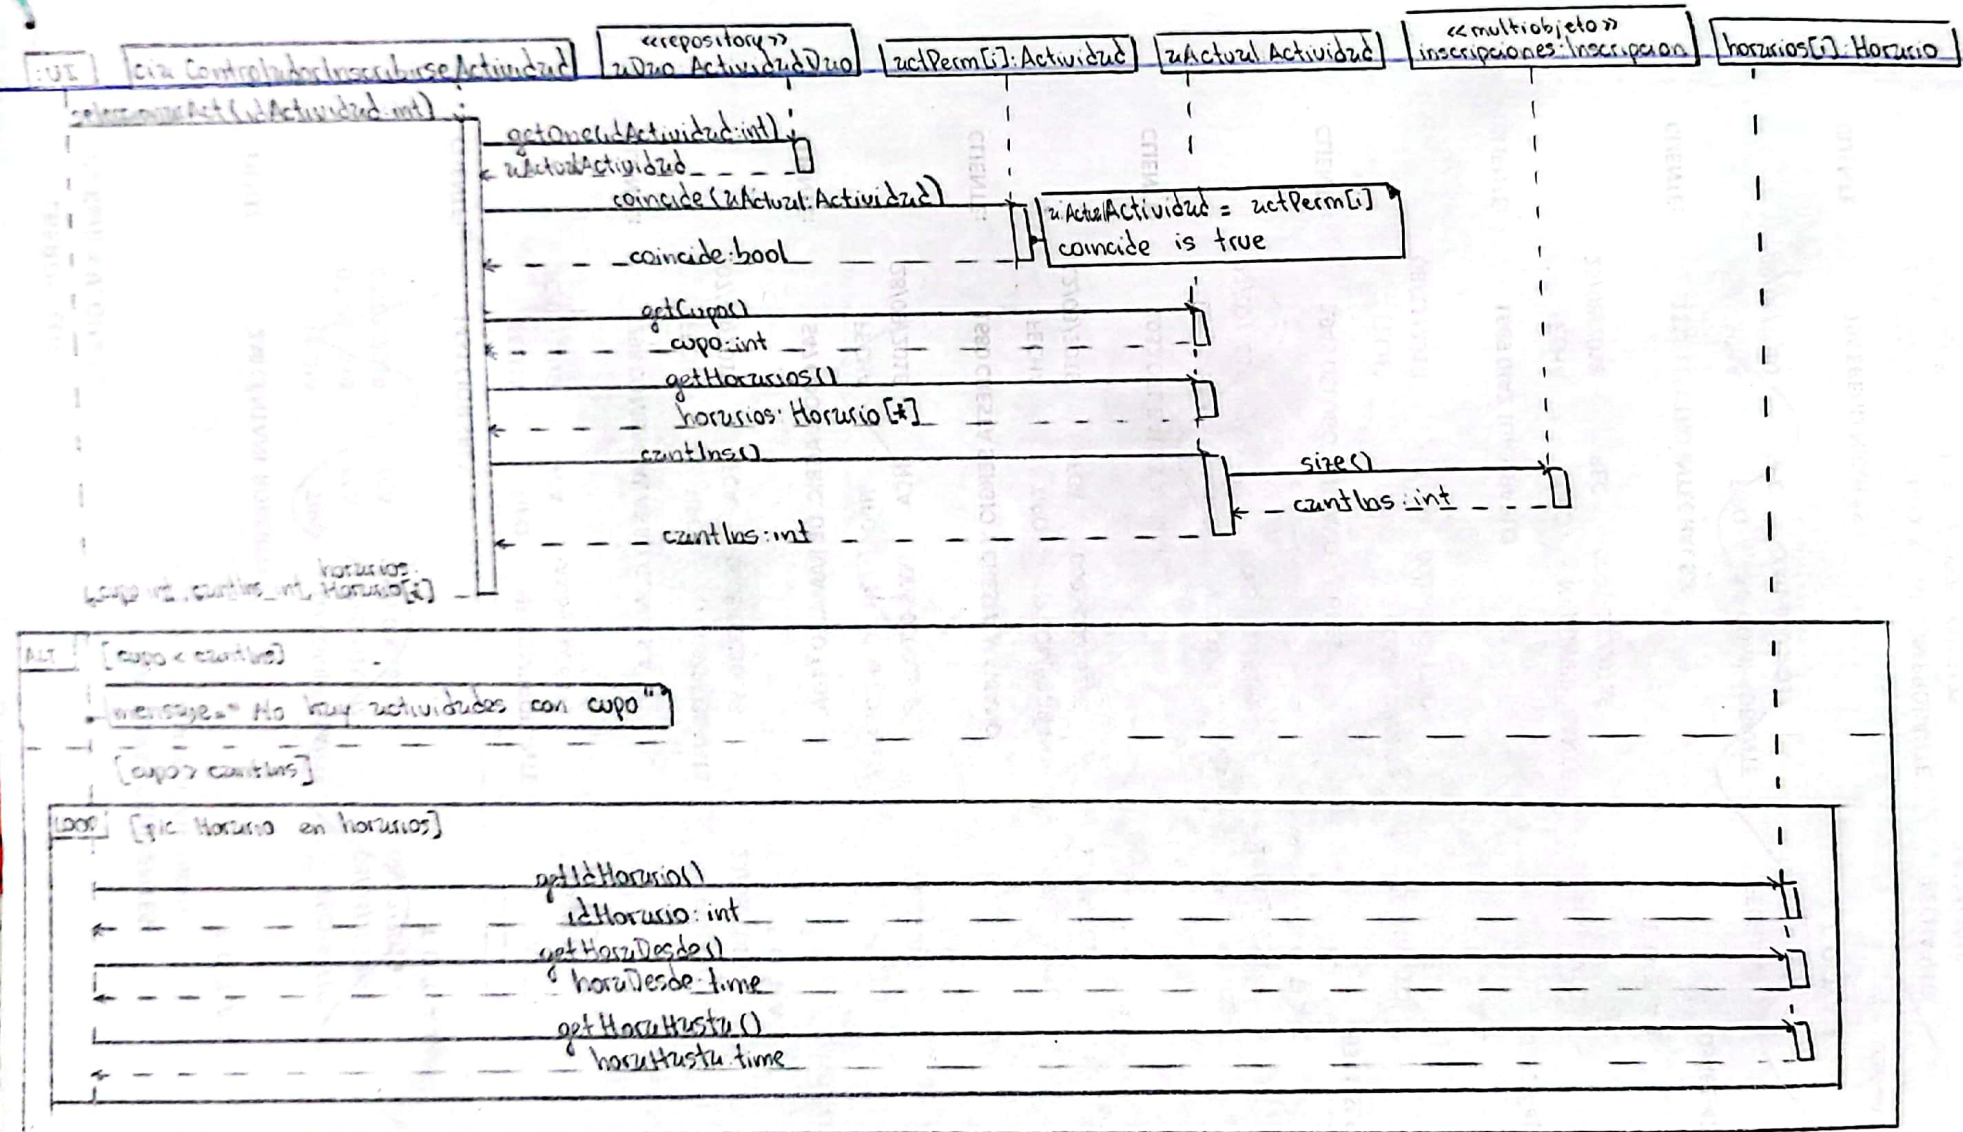 :UI
cia ControladorInscribirseActividad
<<repository>>
aDao ActividadDao
actPerm[i]:Actividad
aActual Actividad
<<multiobjeto>>
inscripciones:Inscripcion
horarios[i]:Horario
seleccionarAct(idActividad:int)
getOne(idActividad:int)
aActualActividad
coincide(aActual:Actividad)
aActualActividad = actPerm[i]
coincide is true
coincide:bool
getCupo()
cupo:int
getHorarios()
horarios: Horario[*]
cantIns()
size()
cantIns:int
cantIns:int
horarios:
cupo int, cantIns int, Horario[*]
ALT
[cupo < cantIns]
mensaje="No hay actividades con cupo"
[cupo > cantIns]
LOOP
[p/c Horario en horarios]
getIdHorario()
idHorario:int
getHoraDesde()
horaDesde:time
getHoraHasta()
horaHasta:time